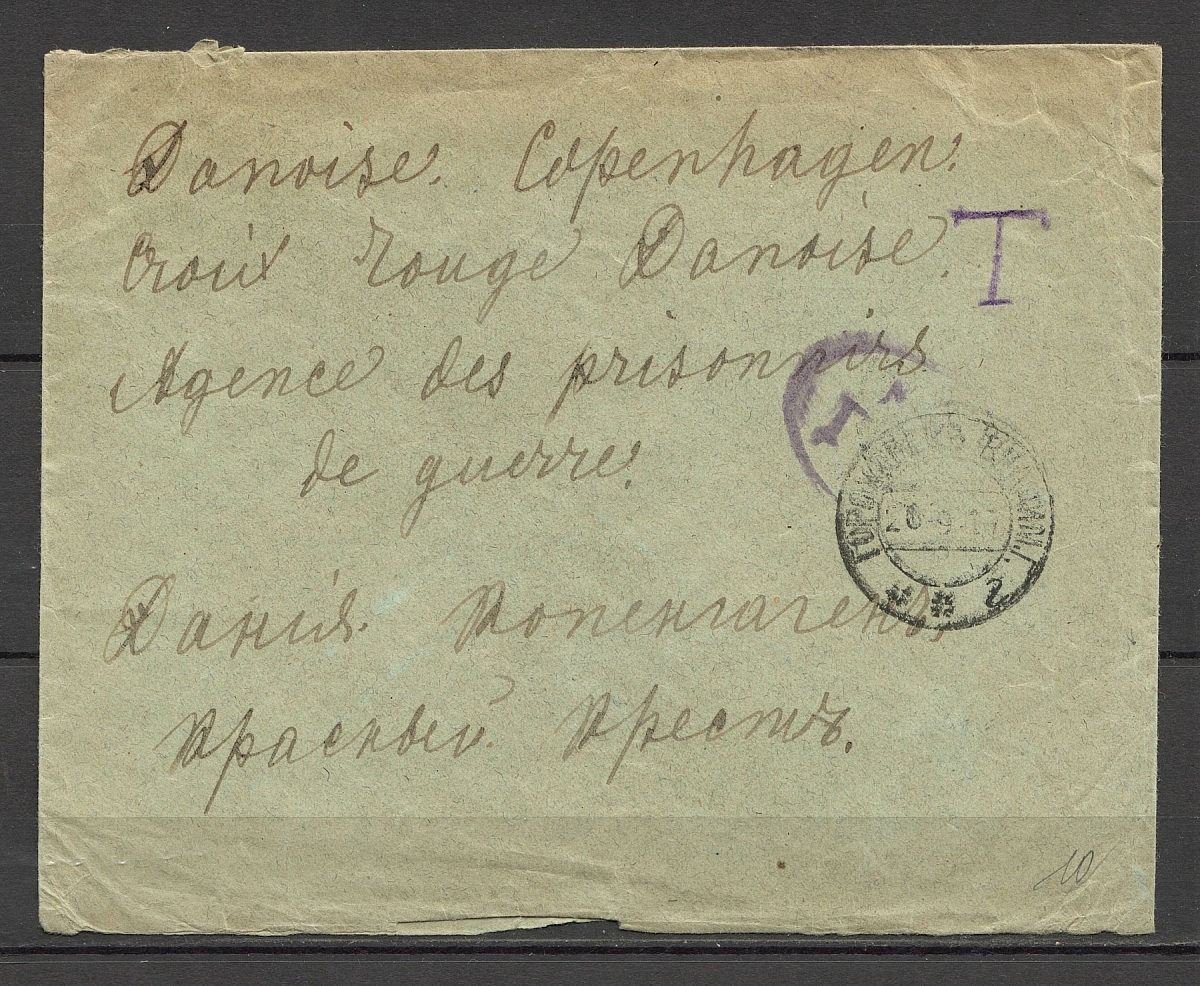 Danoise. Copenhagen.
Croix rouge Danoise.
T
Agence des prisonnirs
de guerre.
ГОРОХОВЕЦЪ ВЛАДИМ. Г.
26-9-17
2
Данія. Копенгагенъ,
Красный Крестъ.
10